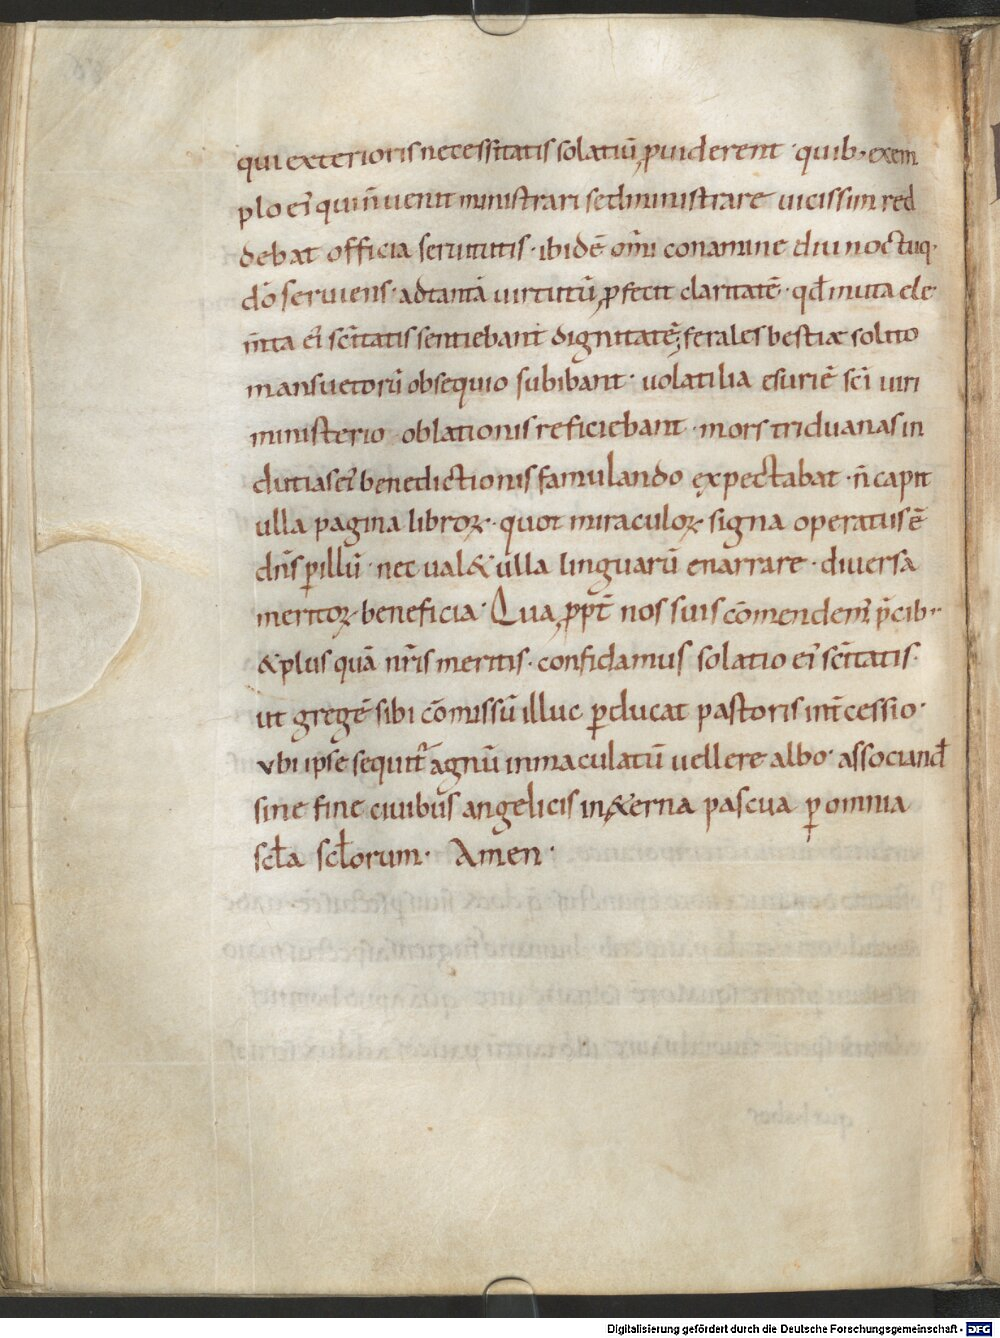 qui exterioris necessitatis solatiū ꝓuiderent · quib; exem
plo ei᷒ qui n̄ uenit ministrari sed ministrare uicissim red
debat officia seruitutis · ibidē om̄i conamine diu noctuq·
dō seruiens · ad tantā uirtutū ꝓfecit claritatē · qd̄ muta ele
m̄ta ei᷒ sc̄itatis sentiebant dignitatē; ferales bestiæ solito
mansuetorū obsequio subibant · uolatilia esuriē sc̄i uiri
ministerio oblationis reficiebant · mors triduanas in
dutias ei᷒ benedictionis famulando expectabat · n̄ capit
ulla pagina libroꝝ · quot miraculoꝝ signa operatus ē
dn̄s ꝑ illū · nec ual& ulla linguarū enarrare · diuersa
meritoꝝ beneficia · Qua ꝓpt̄ nos suis cōmendem᷒ p̄cib·
& plus quā nr̄is meritis · confidamus solatio ei᷒ sc̄itatis ·
ut gregē sibi cōmissū illuc ꝑducat pastoris int̄cessio ·
vbi ipse sequit᷑ agnū inmaculatū uellere albo · associand̄
sine fine ciuibus angelicis in &erna pascua ꝑ omnia
scl̄a scl̄orum · Amen ·
Digitalisierung gefördert durch die Deutsche Forschungsgemeinschaft - DFG